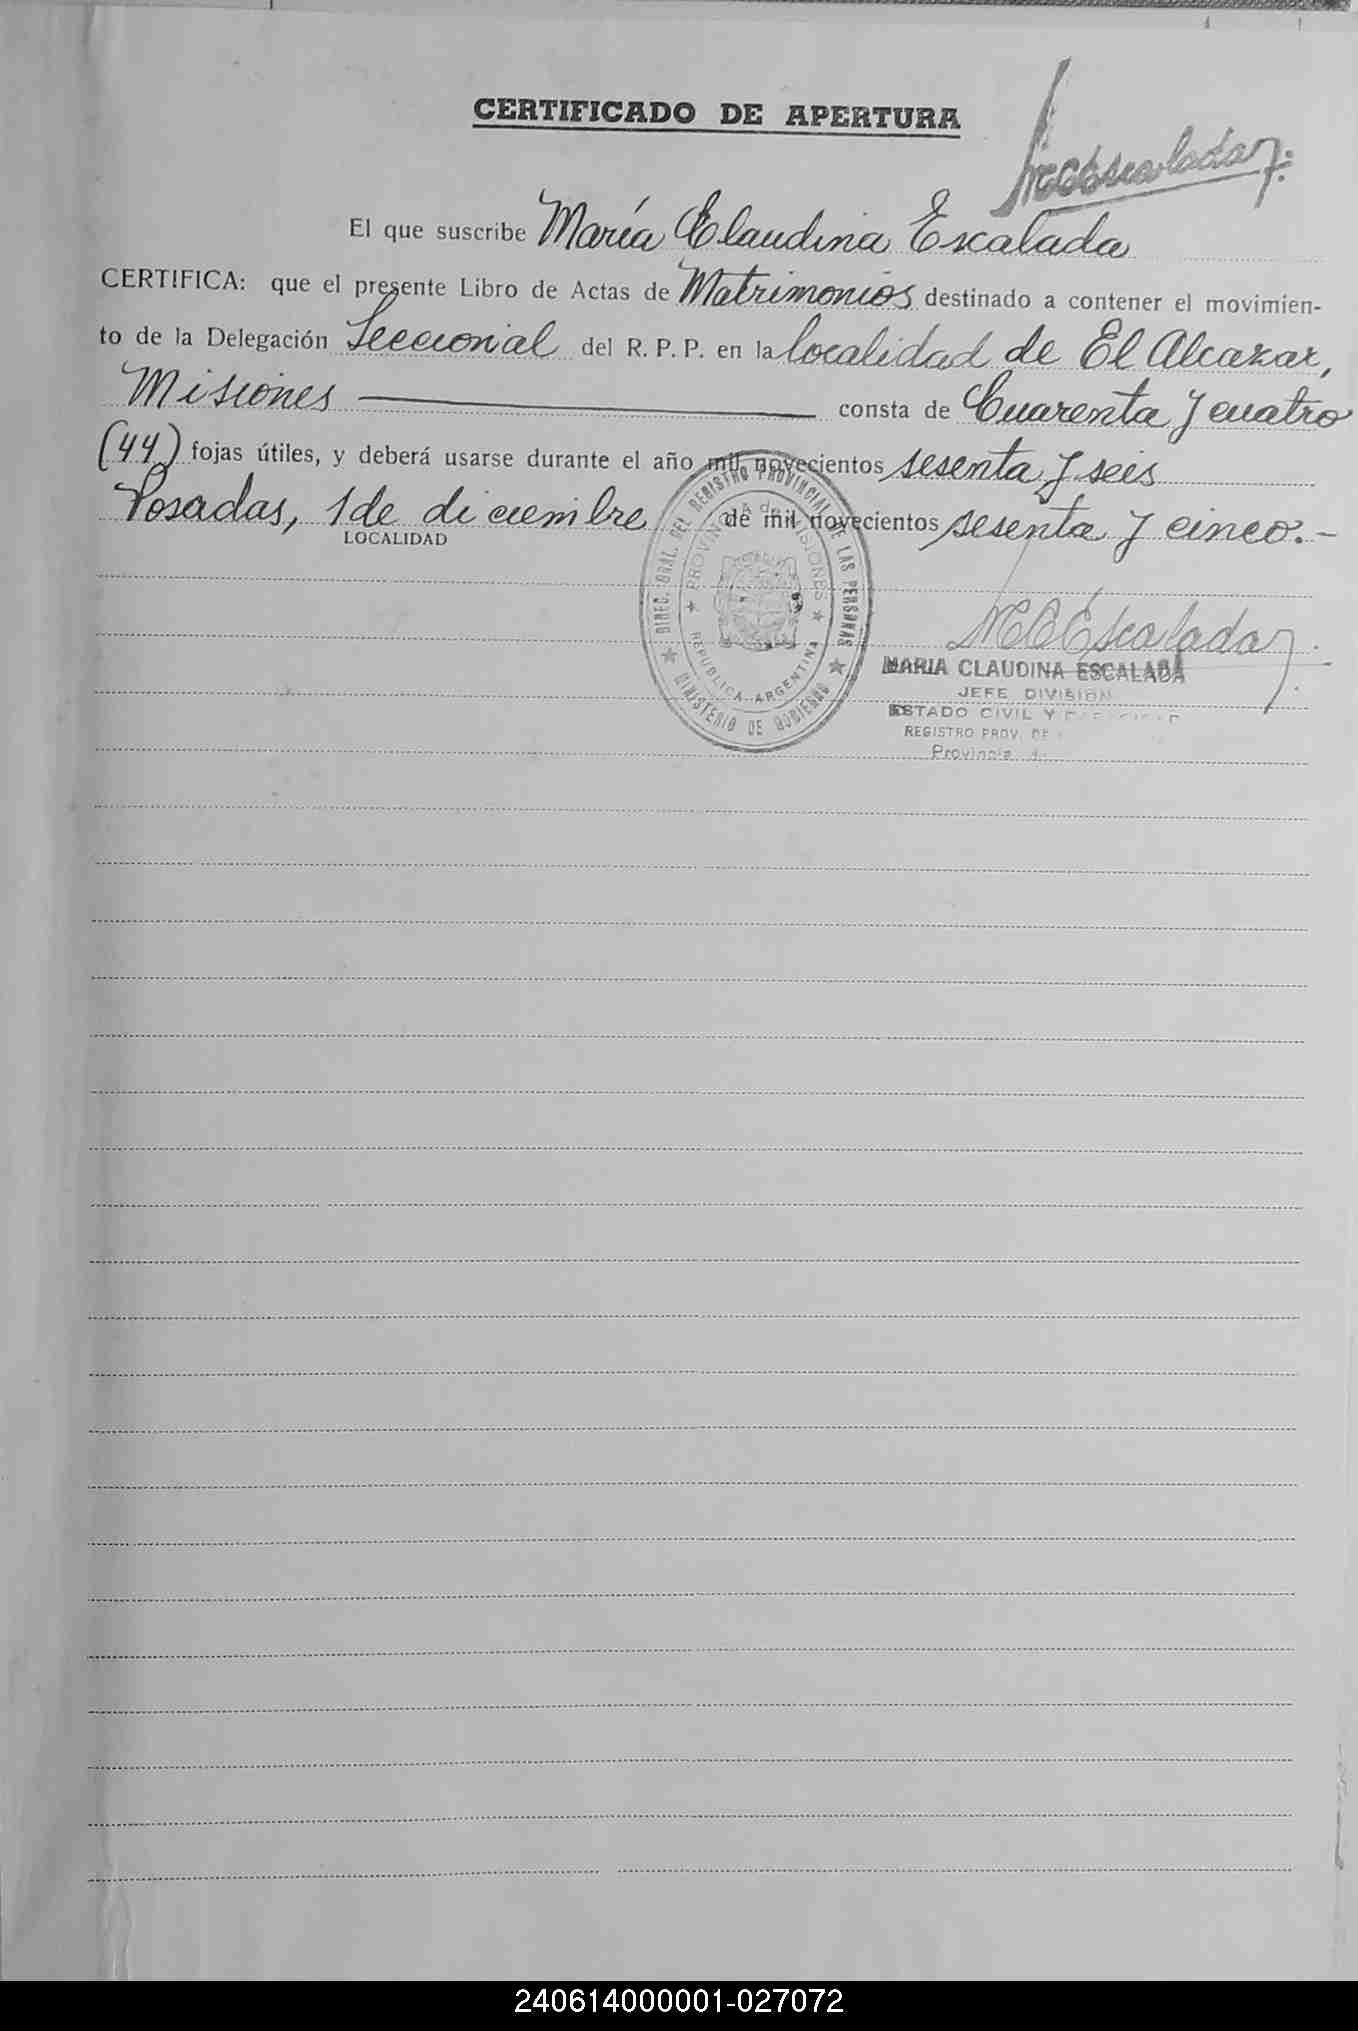 CERTIFICADO DE APERTURA
MCEscalada
El que suscribe María Claudina Escalada
CERTIFICA: que el presente Libro de Actas de Matrimonios destinado a contener el movimien-
to de la Delegación Seccional del R. P. P. en la localidad de El Alcazar,
Misiones consta de Cuarenta y cuatro
(44) fojas útiles, y deberá usarse durante el año mil novecientos sesenta y seis
Posadas, 1 de diciembre de mil novecientos sesenta y cinco.-
LOCALIDAD
DIREC. GRAL. DEL REGISTRO PROVINCIAL DE LAS PERSONAS
MINISTERIO DE GOBIERNO
PROVINCIA de MISIONES
REPUBLICA ARGENTINA
MCEscalada
MARIA CLAUDINA ESCALADA
JEFE DIVISION
ESTADO CIVIL Y
REGISTRO PROV. DE
Provincia
240614000001-027072